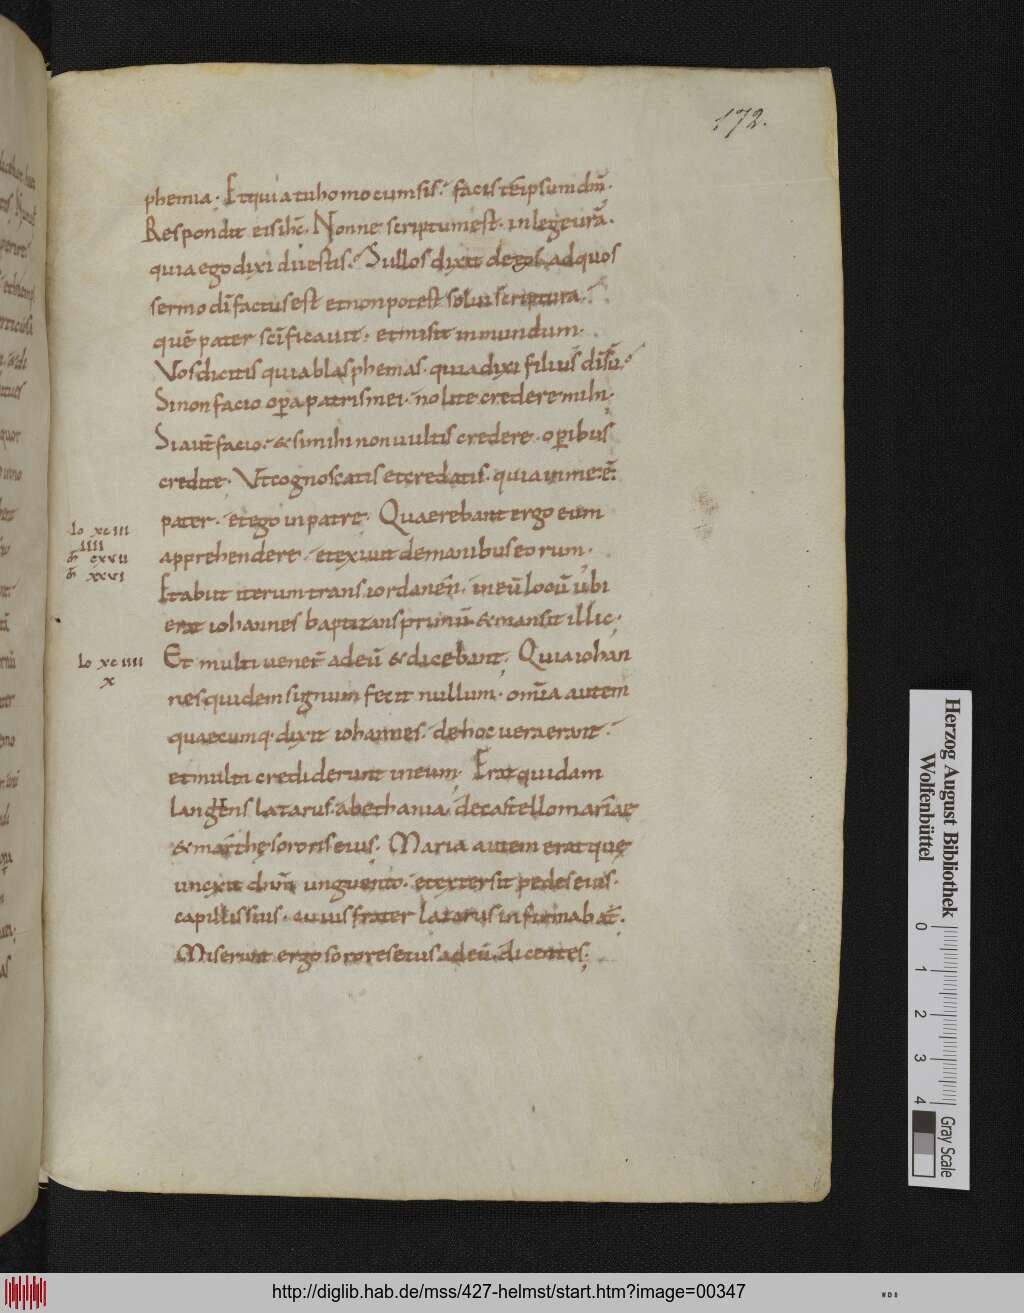 172.
phemia. Et quia tu homo cum sis. facis te ipsum dm̄.
Respondit eis ihc̄. Nonne scriptum est. in lege ur̄a.
quia ego dixi dii estis. Si illos dixit deos ad quos
sermo dī factus est et non potest solui scriptura.
quē pater sc̄ificauit. et misit in mundum.
Vos dicitis quia blasphemas. quia dixi filius dī sū.
Si non facio op̄a patris mei. nolite credere mihi.
Si aut̄ facio. & si mihi non uultis credere. op̄ibus
credite. Vt cognoscatis et credatis. quia in me. ē.
pater. et ego in patre. Quaerebant ergo eum
apprehendere. et exiuit de manibus eorum.
Et abiit iterum trans iordanen. in eū locū ubi
erat iohannes baptizans primū & mansit illic.
Et multi uener̄ ad eū & dicebant. Quia iohan
nes quidem signum fecit nullum. om̄ia autem
quaecumq. dixit iohannes. de hoc uera erant.
et multi crediderunt in eum. Erat quidam
langens lazarus. a bethania. de castello mariae
& marthę sororis eius. Maria autem erat quę
unxit dnm̄ unguento. et extersit pedes eius.
capillis suis. cuius frater lazarus infirmabat̄.
Miserunt ergo sorores eius ad eū. dicentes.
Io xciii
iiii
m̄ cxxvii
m̄ xxvi
Io xciiii
x
Herzog August Bibliothek
Wolfenbüttel
0 1 2 3 4
Gray Scale
http://diglib.hab.de/mss/427-helmst/start.htm?image=00347